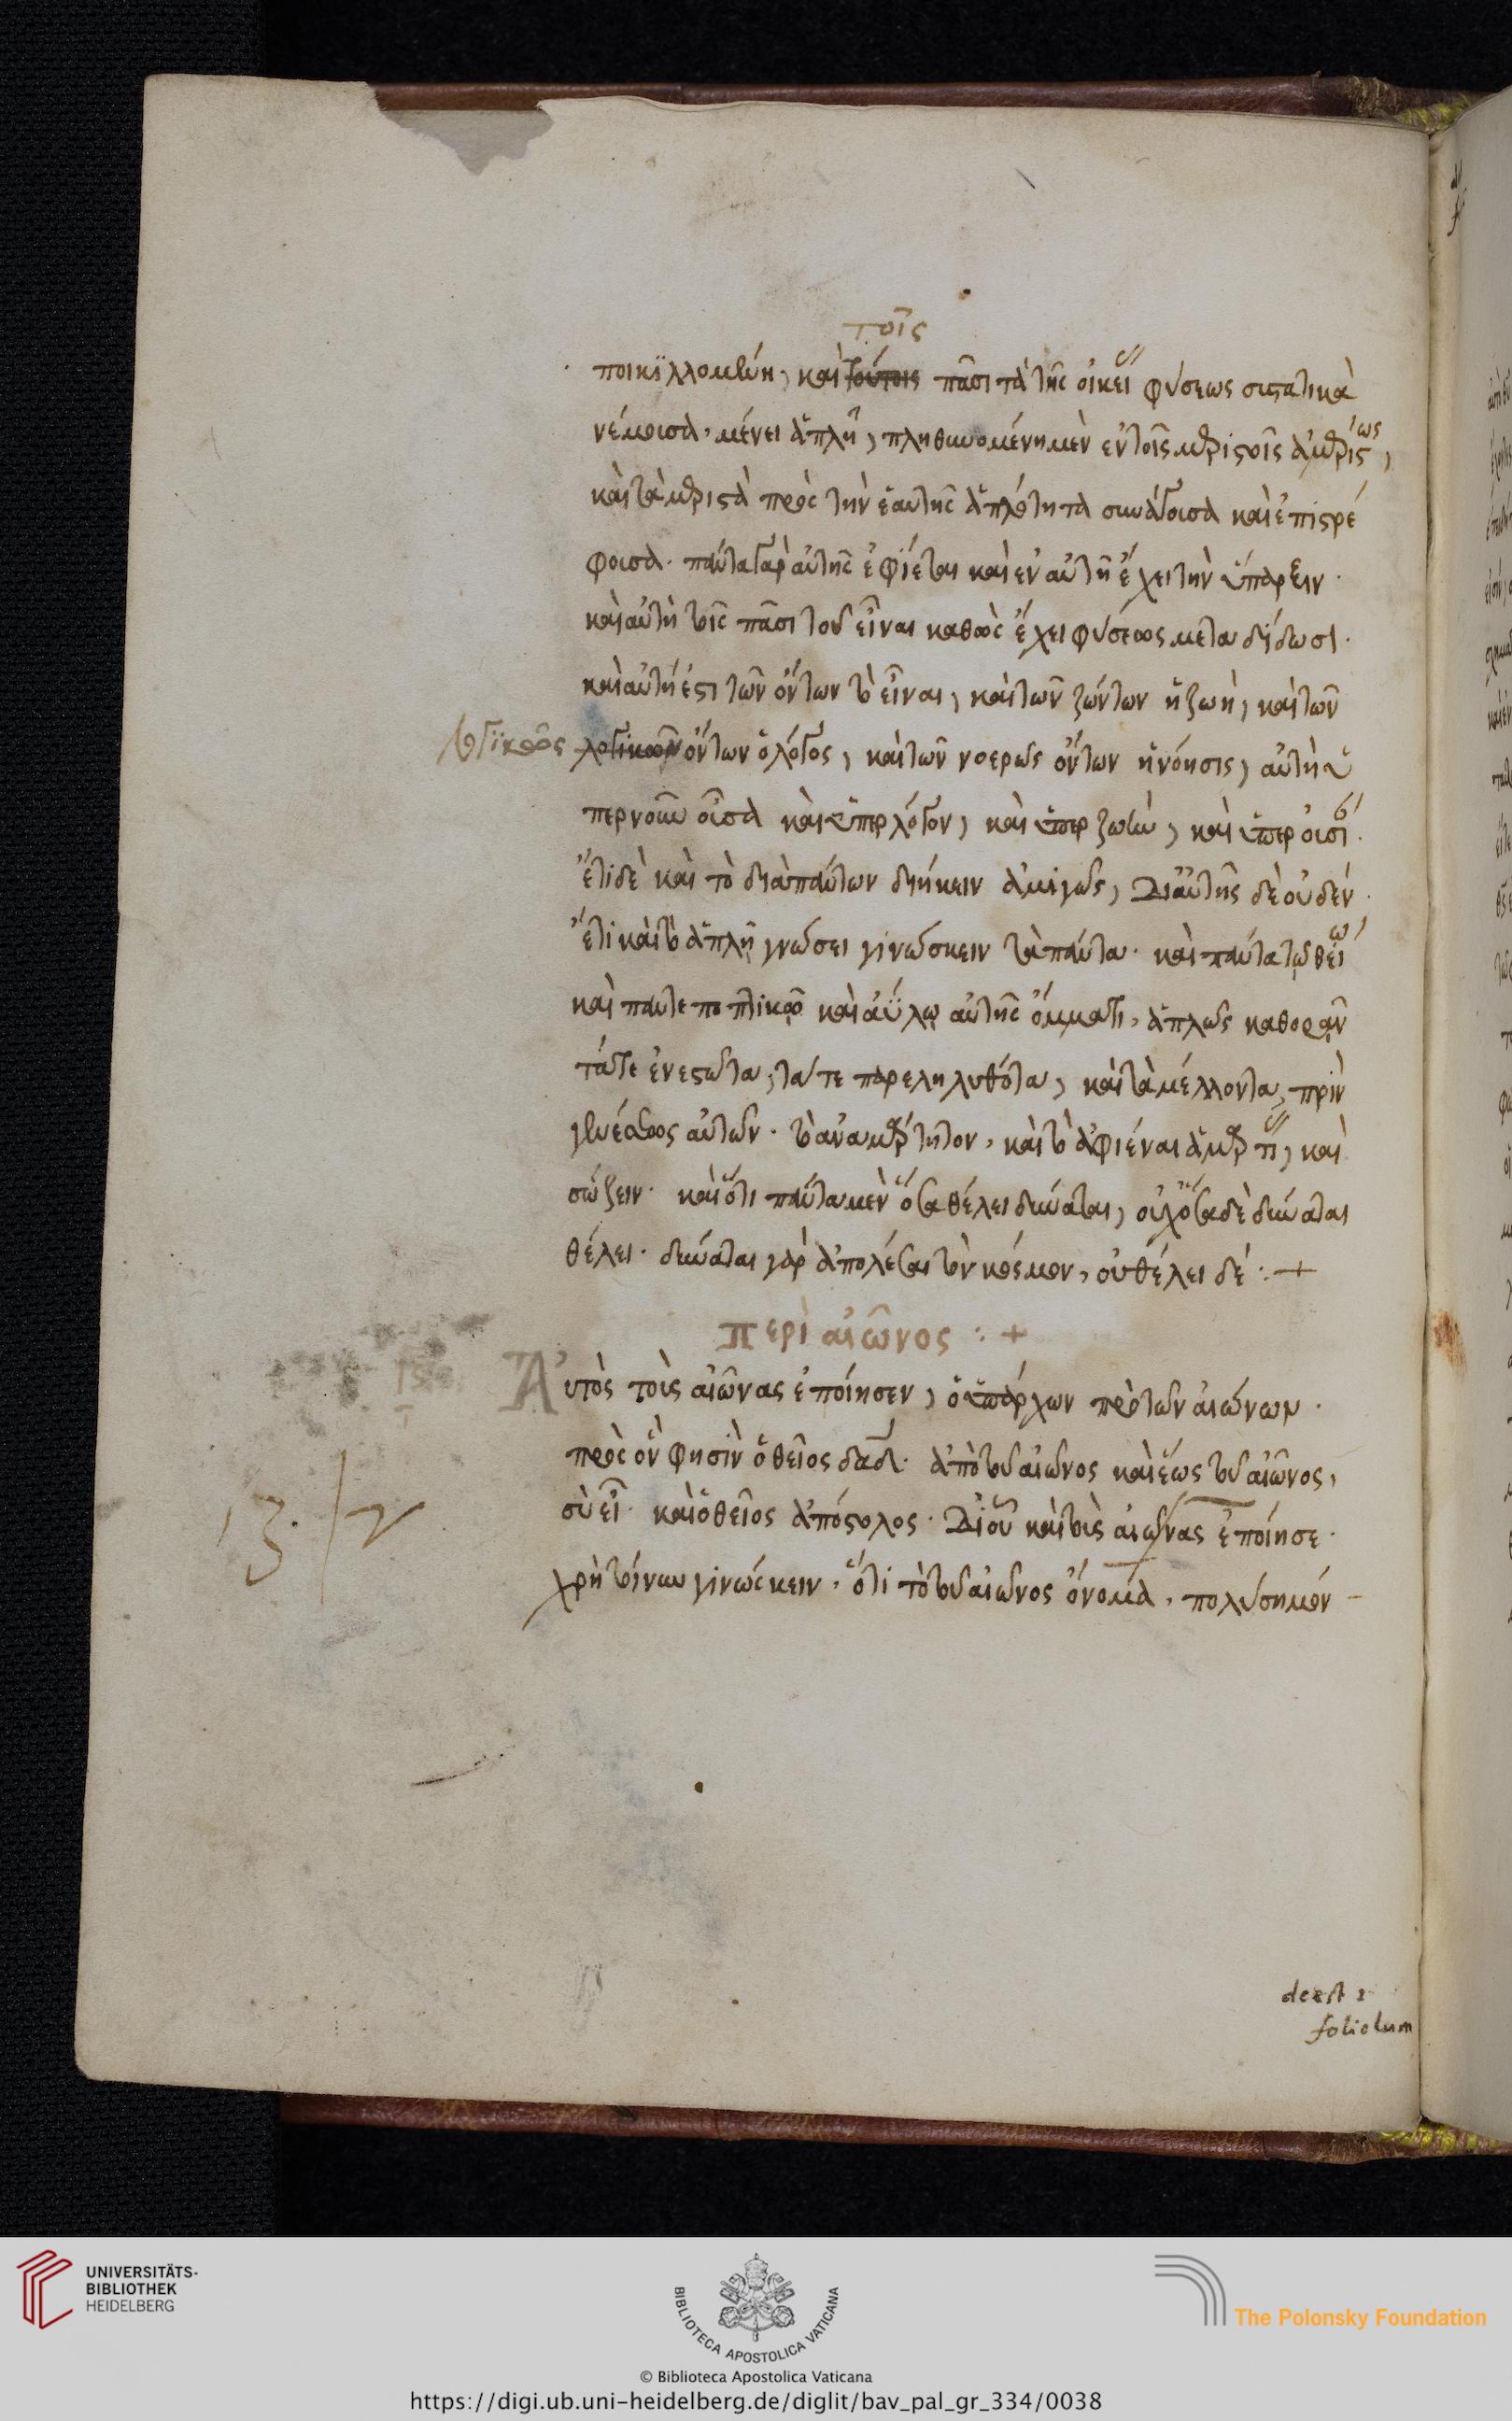 τοῖς
ποικιλλομένη, καὶ τούτοις πᾶσι τὰ τῆς οἰκεί φύσεως συστατικὰ
νέμουσα, μένει ἁπλῆ, πληθυνομένη μὲν ἐν τοῖς μεριστοῖς ἀμερίστως,
καὶ τὰ μεριστὰ πρὸς τὴν ἑαυτῆς ἁπλότητα συνάγουσα καὶ ἐπιστρέ
φουσα· πάντα γὰρ αὐτῆς ἐφίεται καὶ ἐν αὐτῇ ἔχει τὴν ὕπαρξιν·
καὶ αὐτὴ τοῖς πᾶσι τοῦ εἶναι καθὼς ἔχει φύσεως μεταδίδωσι·
καὶ αὐτή ἐστι τῶν ὄντων τὸ εἶναι, καὶ τῶν ζώντων ἡ ζωὴ, καὶ τῶν
λογϊκῶς λογικῶν ὄντων ὁ λόγος, καὶ τῶν νοερῶς ὄντων ἡ νόησις, αὐτὴ ὑ
πὲρ νοῦν οὖσα καὶ ὑπὲρ λόγον, καὶ ὑπὲρ ζωὴν, καὶ ὑπὲρ οὐσί·
ἔτι δὲ καὶ τὸ διὰ πάντων διήκειν ἀμιγῶς, δι' αὐτῆς δὲ οὐδέν·
ἔτι καὶ τὸ ἁπλῇ γνώσει γινώσκειν τὰ πάντα· καὶ πάντα τῷ θείω
καὶ παντεποπτικῷ καὶ ἀΰλῳ αὐτῆς ὄμματι, ἁπλῶς καθορᾷν
τά τε ἐνεστῶτα, τά τε παρεληλυθότα, καὶ τὰ μέλλοντα, πρὶν
γενέσεως αὐτῶν· τὸ ἀναμάρτητον, καὶ τὸ ἀφιέναι ἁμαρτί, καὶ
σώζειν· καὶ ὅτι πάντα μὲν ὅσα θέλει δύναται, οὐχ ὅσα δὲ δύναται
θέλει· δύναται γὰρ ἀπολέσαι τὸν κόσμον, οὐ θέλει δέ :+
Περὶ αἰῶνος :+
Αὐτὸς τοὺς αἰῶνας ἐποίησεν, ὁ ὑπάρχων πρὸ τῶν αἰώνων·
πρὸς ὃν φησὶν ὁ θεῖος δαδ· ἀπὸ τοῦ αἰῶνος καὶ ἕως τοῦ αἰῶνος,
σὺ εἶ· καὶ ὁ θεῖος ἀπόστολος· Δι' οὗ καὶ τοὺς αἰῶνας ἐποίησε·
χρὴ τοίνυν γινώσκειν, ὅτι τὸ τοῦ αἰῶνος ὄνομα, πολύσημόν
deest 1
foliolum
UNIVERSITÄTS-
BIBLIOTHEK
HEIDELBERG
BIBLIOTECA APOSTOLICA VATICANA
The Polonsky Foundation
© Biblioteca Apostolica Vaticana
https://digi.ub.uni-heidelberg.de/diglit/bav_pal_gr_334/0038